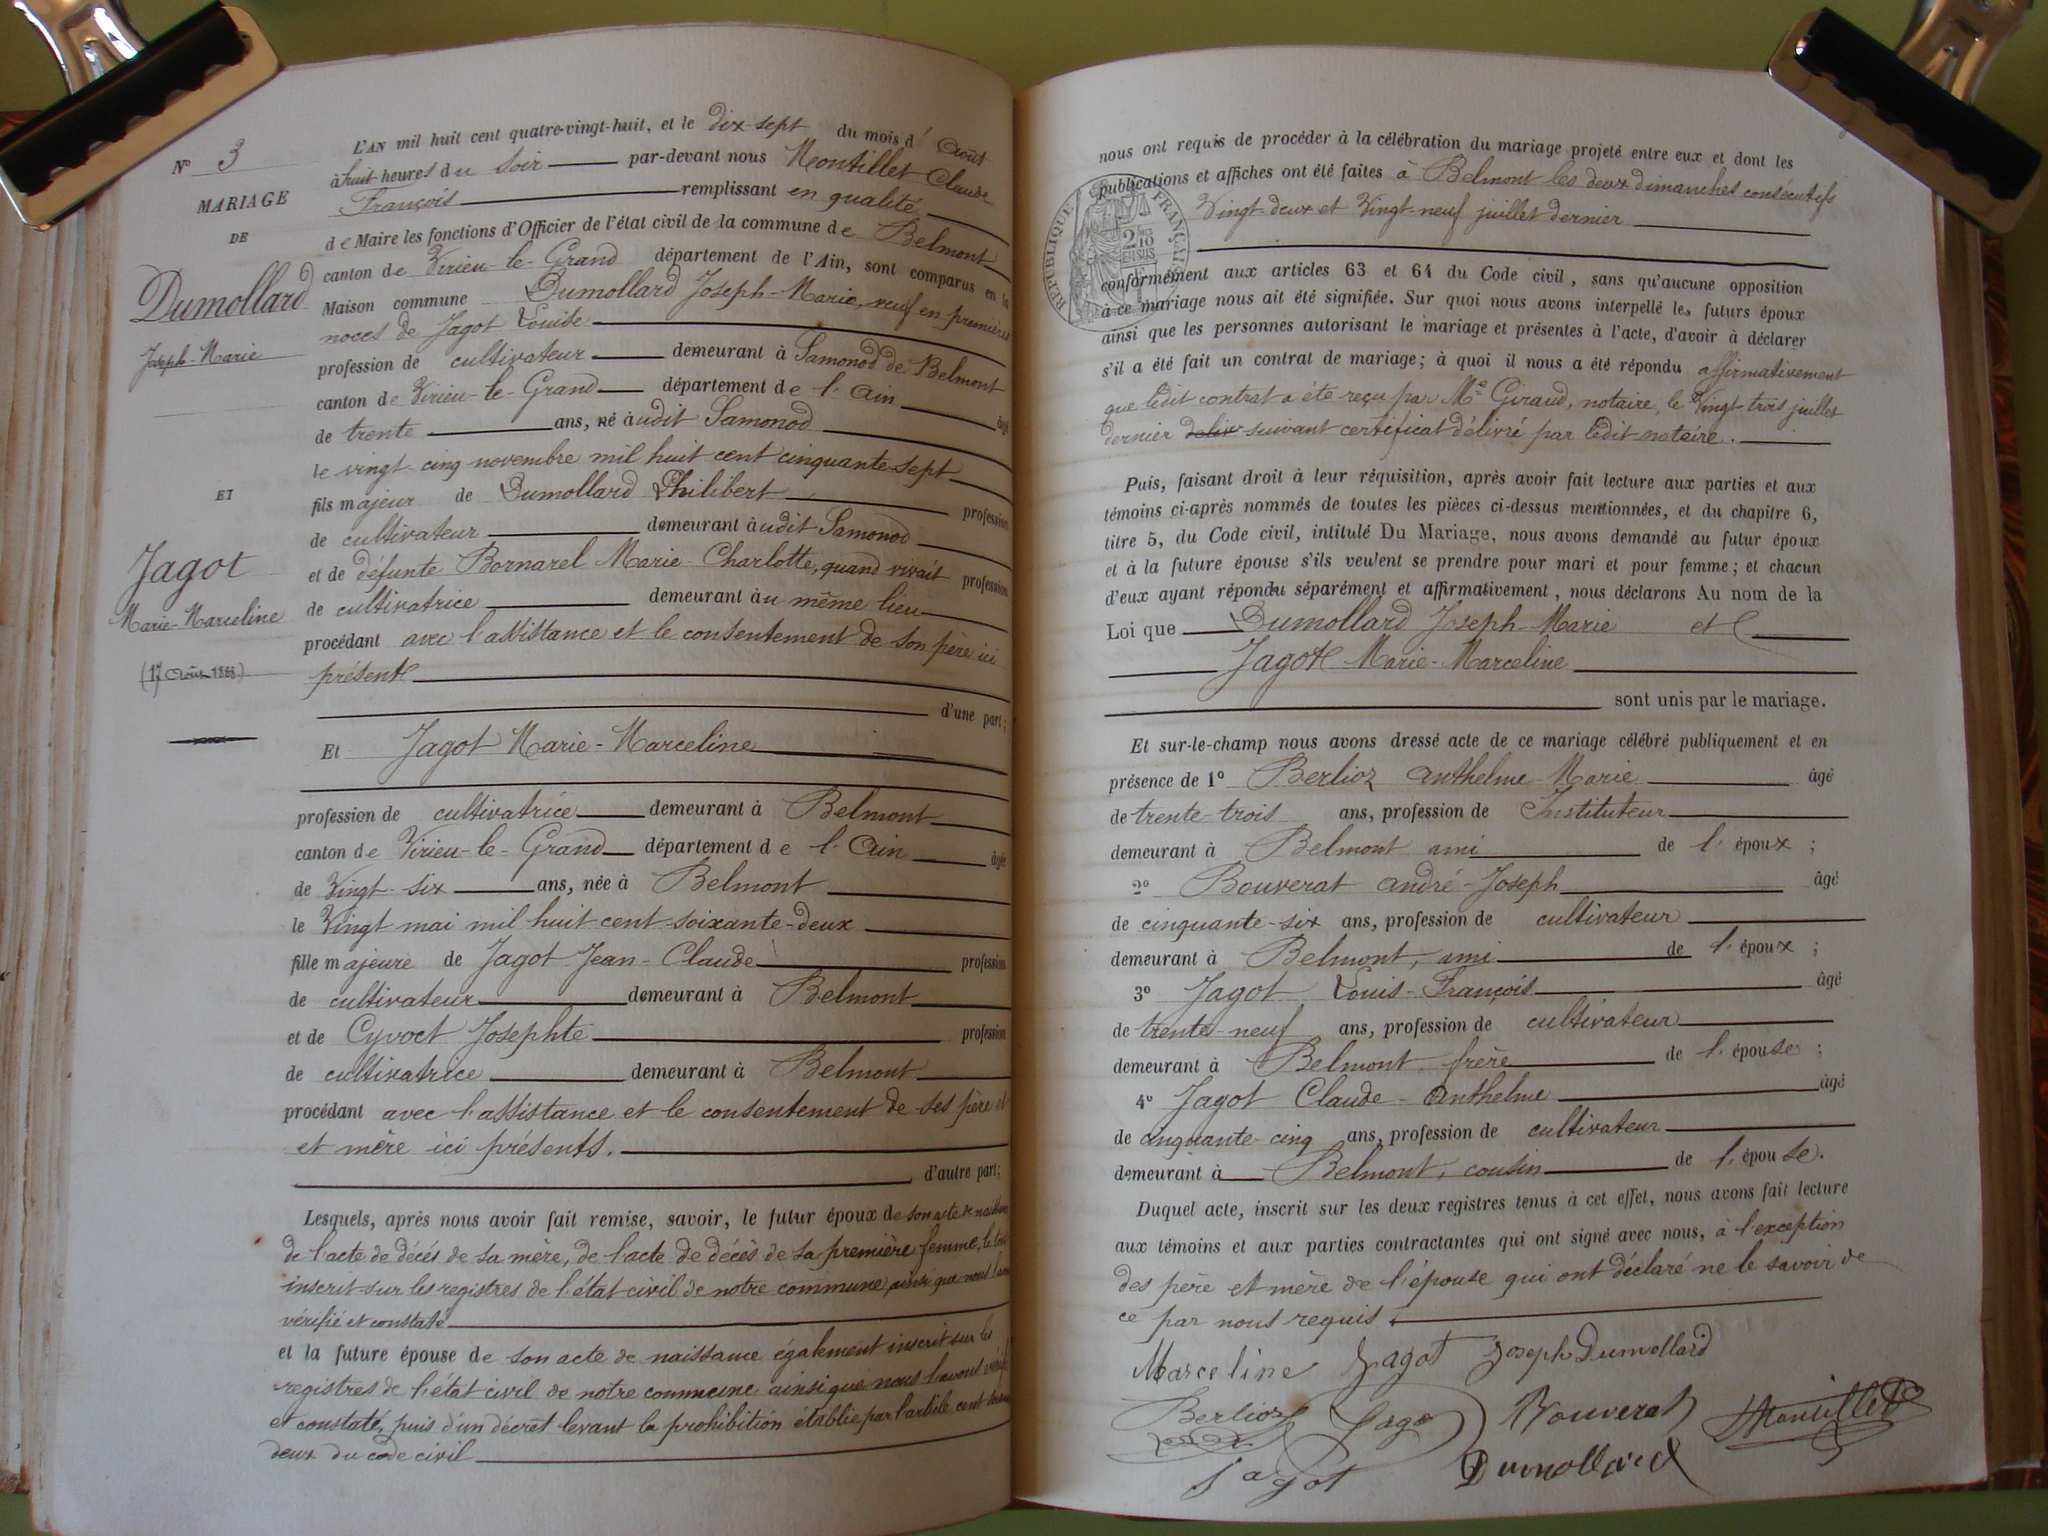 N° 3
MARIAGE
DE
Dumollard
Joseph-Marie
ET
Jagot
Marie-Marceline
(17 Août 1888)
L'AN mil huit cent quatre-vingt-huit, et le dix-sept du mois d'Août
à huit heures du soir par-devant nous Montillet Claude
François remplissant en qualité
de Maire les fonctions d'Officier de l'état civil de la commune de Belmont
canton de Virieu-le-Grand département de l'Ain, sont comparus en la
Maison commune Dumollard Joseph-Marie, veuf en premières
noces de Jagot Louise
profession de cultivateur demeurant à Samonod de Belmont
canton de Virieu-le-Grand département de l'Ain âgé
de trente ans, né audit Samonod
le vingt-cinq novembre mil huit cent cinquante-sept
fils majeur de Dumollard Philibert profession
de cultivateur demeurant audit Samonod
et de défunte Bornarel Marie-Charlotte, quand vivait profession
de cultivatrice demeurant au même lieu
procédant avec l'assistance et le consentement de son père ici
présent
d'une part;
Et Jagot Marie-Marceline
profession de cultivatrice demeurant à Belmont
canton de Virieu-le-Grand département de l'Ain âgée
de Vingt-six ans, née à Belmont
le Vingt mai mil huit cent soixante-deux
fille majeure de Jagot Jean-Claude profession
de cultivateur demeurant à Belmont
et de Cyvoct Josephte profession
de cultivatrice demeurant à Belmont
procédant avec l'assistance et le consentement de ses père et
et mère ici présents.
d'autre part;
Lesquels, après nous avoir fait remise, savoir, le futur époux de son acte de naissance
de l'acte de décès de sa mère, de l'acte de décès de sa première femme, le tout
inscrit sur les registres de l'état civil de notre commune, ainsi que nous l'avons
vérifié et constaté
et la future épouse de son acte de naissance également inscrit sur les
registres de l'état civil de notre commune ainsi que nous l'avons vérifié
et constaté, puis d'un décret levant la prohibition établie par l'article cent soixante
deux du code civil
nous ont requis de procéder à la célébration du mariage projeté entre eux et dont les
publications et affiches ont été faites à Belmont les deux dimanches consécutifs
Vingt-deux et Vingt-neuf juillet dernier
RÉPUBLIQUE FRANÇAISE
conformément aux articles 63 et 64 du Code civil, sans qu'aucune opposition
à ce mariage nous ait été signifiée. Sur quoi nous avons interpellé les futurs époux
ainsi que les personnes autorisant le mariage et présentes à l'acte, d'avoir à déclarer
s'il a été fait un contrat de mariage; à quoi il nous a été répondu affirmativement
que ledit contrat a été reçu par Me Giraud, notaire, le Vingt-trois juillet
dernier suivant certificat délivré par ledit notaire.
Puis, faisant droit à leur réquisition, après avoir fait lecture aux parties et aux
témoins ci-après nommés de toutes les pièces ci-dessus mentionnées, et du chapitre 6,
titre 5, du Code civil, intitulé Du Mariage, nous avons demandé au futur époux
et à la future épouse s'ils veulent se prendre pour mari et pour femme; et chacun
d'eux ayant répondu séparément et affirmativement, nous déclarons Au nom de la
Loi que Dumollard Joseph-Marie et
Jagot Marie-Marceline
sont unis par le mariage.
Et sur-le-champ nous avons dressé acte de ce mariage célébré publiquement et en
présence de 1° Berlioz Anthelme-Marie âgé
de trente-trois ans, profession de Instituteur
demeurant à Belmont ami de l'époux ;
2° Bouverat André-Joseph âgé
de cinquante-six ans, profession de cultivateur
demeurant à Belmont, ami de l'époux ;
3° Jagot Louis-François âgé
de trente-neuf ans, profession de cultivateur
demeurant à Belmont, frère de l'épouse ;
4° Jagot Claude-Anthelme âgé
de cinquante-cinq ans, profession de cultivateur
demeurant à Belmont, cousin de l'épouse.
Duquel acte, inscrit sur les deux registres tenus à cet effet, nous avons fait lecture
aux témoins et aux parties contractantes qui ont signé avec nous, à l'exception
des père et mère de l'épouse qui ont déclaré ne le savoir de
ce par nous requis
Marceline Jagot Joseph Dumollard
Berlioz Jagot Bouverat Montillet
Jagot Dumollard